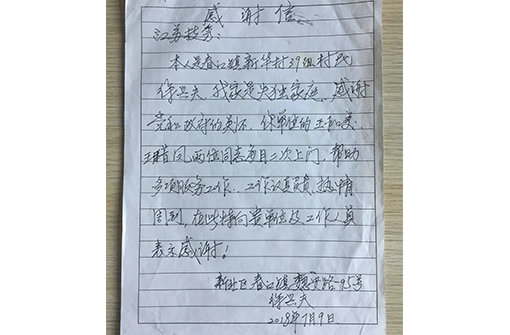 感谢信
江苏技秀:
本人是春江镇新华村39组村民
徐兴夫 我家是失独家庭,感谢
党和政府的关怀,你单位的王和美、
王青凤两位同志每月二次上门,帮助
多项服务工作,工作认真负责,热情
周到,在此特向贵单位及工作人员
表示感谢!
新北区春江镇魏安路95号
徐兴夫
2018年7月9日